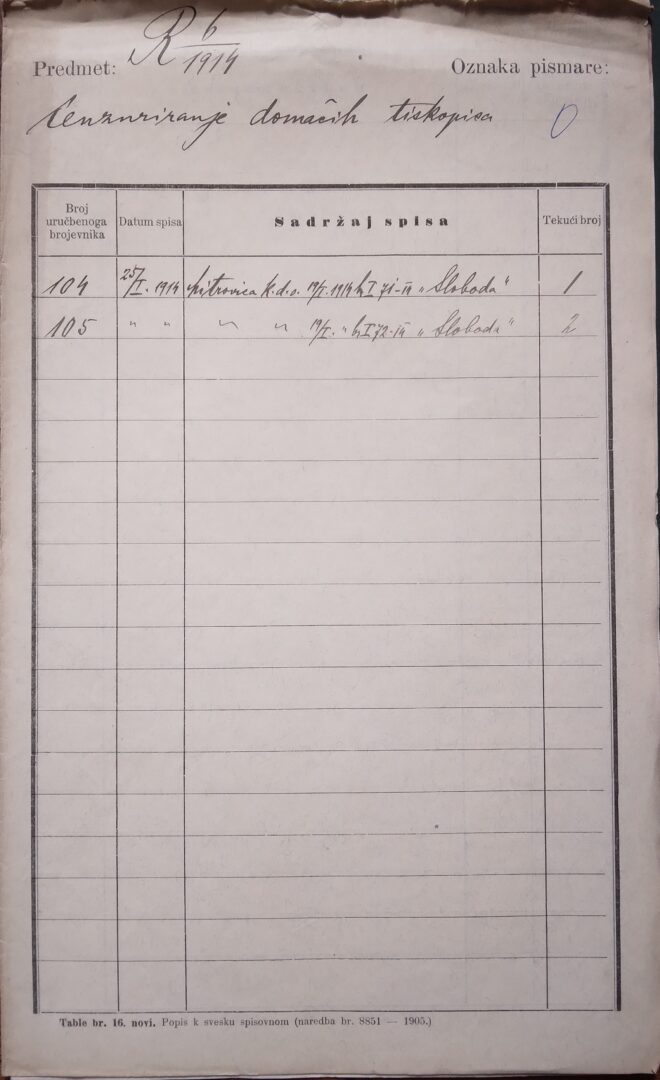 R 6/1914
Predmet: Oznaka pismare:
Cenzuriranje domaćih tiskopisa 0
Broj uručbenoga brojevnika Datum spisa Sadržaj spisa Tekući broj
104 25/I. 1914 Mitrovica k.d.o. 19/I. 1914 I 71-14 „Sloboda" 1
105 " " " " 19/I. " I 72-14 „Sloboda" 2
Table br. 16. novi. Popis k svesku spisovnom (naredba br. 8851 — 1905.)